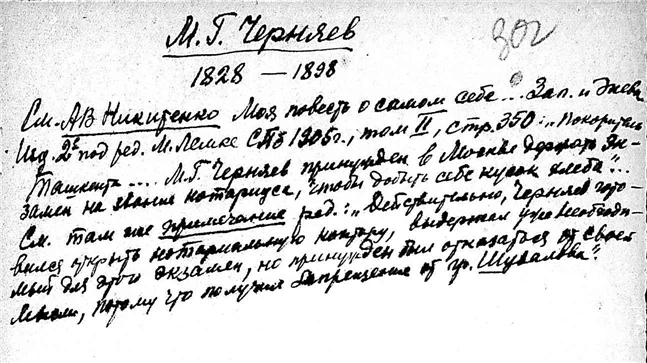 М.Г. Черняев
302
1828 — 1898
См. А В Никитенко Моя повесть о самом себе... Зап. и Дневн.
Изд. 2е под ред. М. Лемке СПб 1905 г., том II, стр. 350: „Покоритель
Ташкента .... М.Г. Черняев принужден в Москве держать эк-
замен на звание нотариуса, чтобы добыть себе кусок хлеба"...
См. там же примечание ред.: „Действительно, Черняев гото-
вился открыть нотариальную контору, выдержал уже необходи-
мый для этого экзамен, но принужден был отказаться от своей
мысли, потому что получил запрещение от гр. Шувалова".